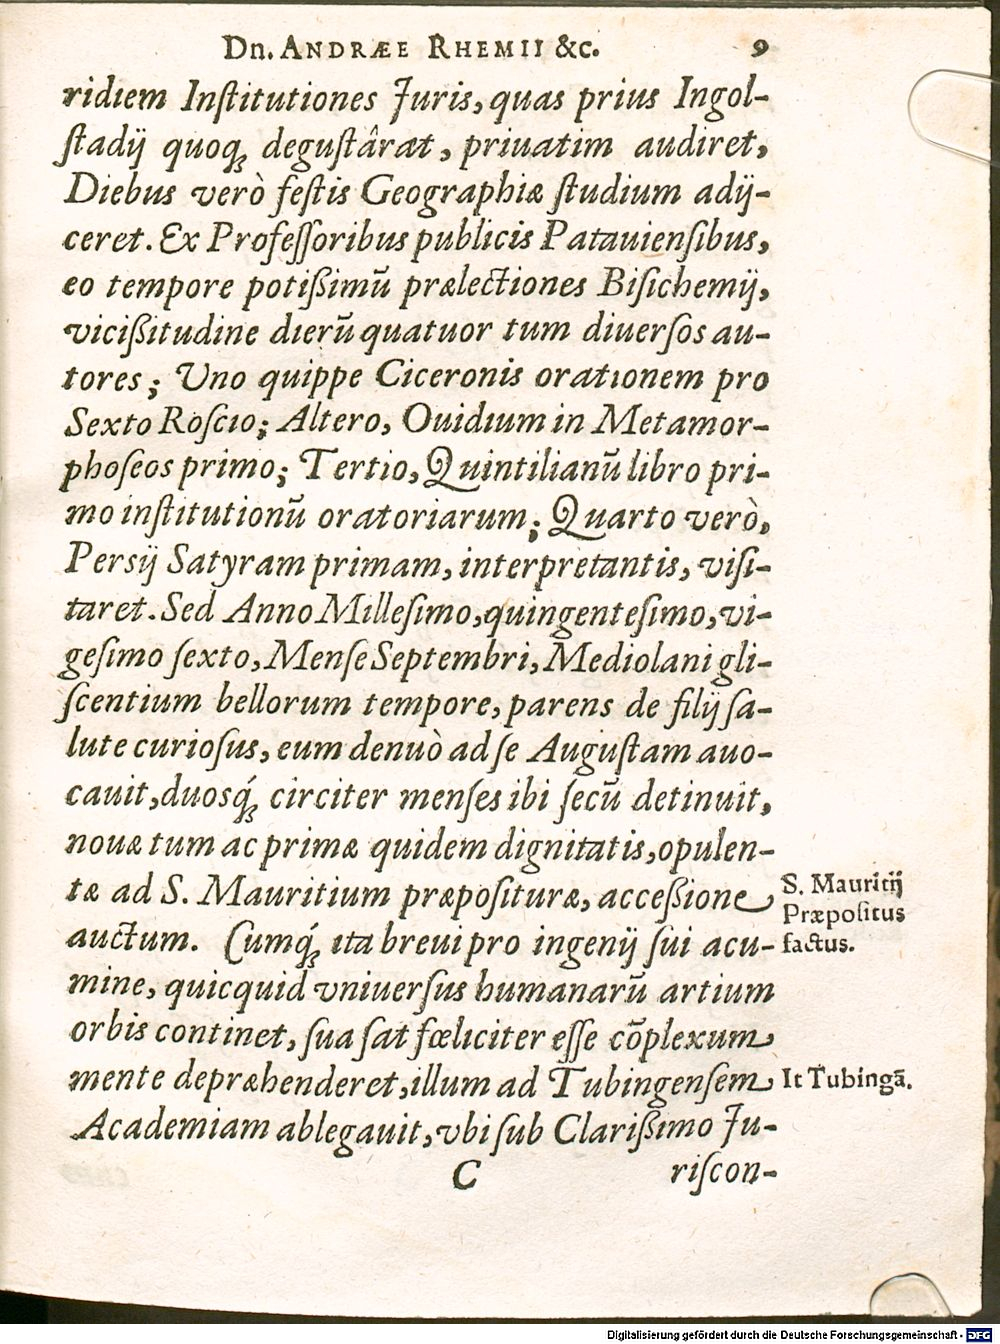 Dn. ANDRÆE RHEMII &c. 9
ridiem Inſtitutiones Juris, quas prius Ingol-
ſtadij quoq́; deguſtârat, priuatim audiret,
Diebus verò feſtis Geographiæ ſtudium adij-
ceret. Ex Profeſſoribus publicis Patauienſibus,
eo tempore potißimũ prælectiones Biſichemij,
vicißitudine dierũ quatuor tum diuerſos au-
tores; Uno quippe Ciceronis orationem pro
Sexto Roſcio; Altero, Ouidium in Metamor-
phoſeos primo; Tertio, Quintilianũ libro pri-
mo inſtitutionũ oratoriarum; Quarto verò,
Persij Satyram primam, interpretantis, viſi-
taret. Sed Anno Milleſimo, quingenteſimo, vi-
geſimo ſexto, Menſe Septembri, Mediolani gli-
ſcentium bellorum tempore, parens de filij ſa-
lute curioſus, eum denuò ad ſe Auguſtam auo-
cauit, duosq́; circiter menſes ibi ſecũ detinuit,
nouæ tum ac primæ quidem dignitatis, opulen-
tæ ad S. Mauritium præpoſituræ, acceßione
auctum. Cumq́; ita breui pro ingenij ſui acu-
mine, quicquid vniuerſus humanarũ artium
orbis continet, ſua ſat fœliciter eſſe cõplexum
mente depræhenderet, illum ad Tubingenſem
Academiam ablegauit, vbi ſub Clarißimo Ju-
C riſcon-
S. Mauritij
Præpoſitus
factus.
It Tubingã.
Digitalisierung gefördert durch die Deutsche Forschungsgemeinschaft - DFG